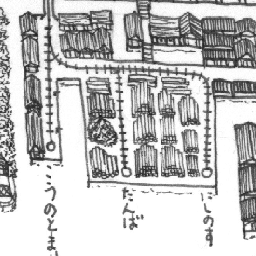 こうのとま
たんば
にしのす